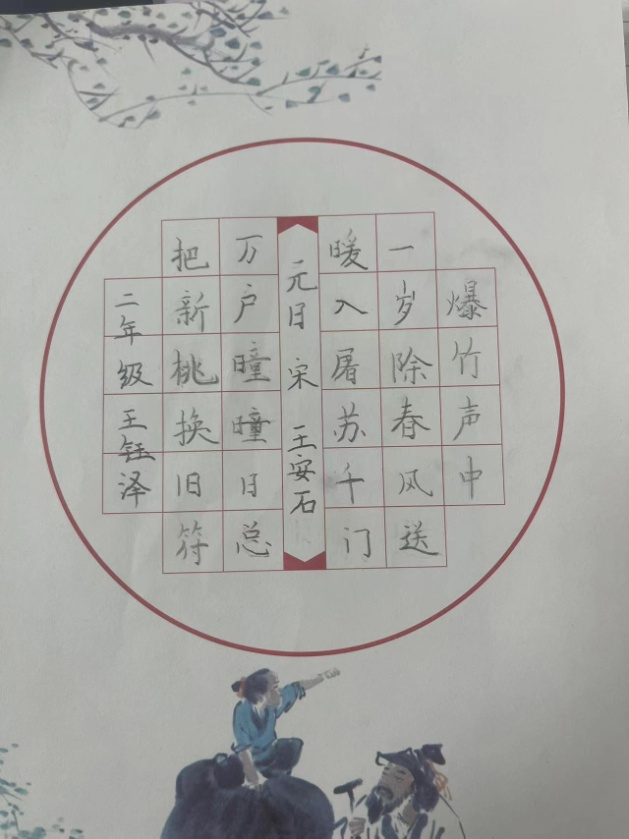 爆竹声中
一岁除春风送
暖入屠苏千门
元日 宋 王安石
万户曈曈日总
把新桃换旧符
二年级王钰泽